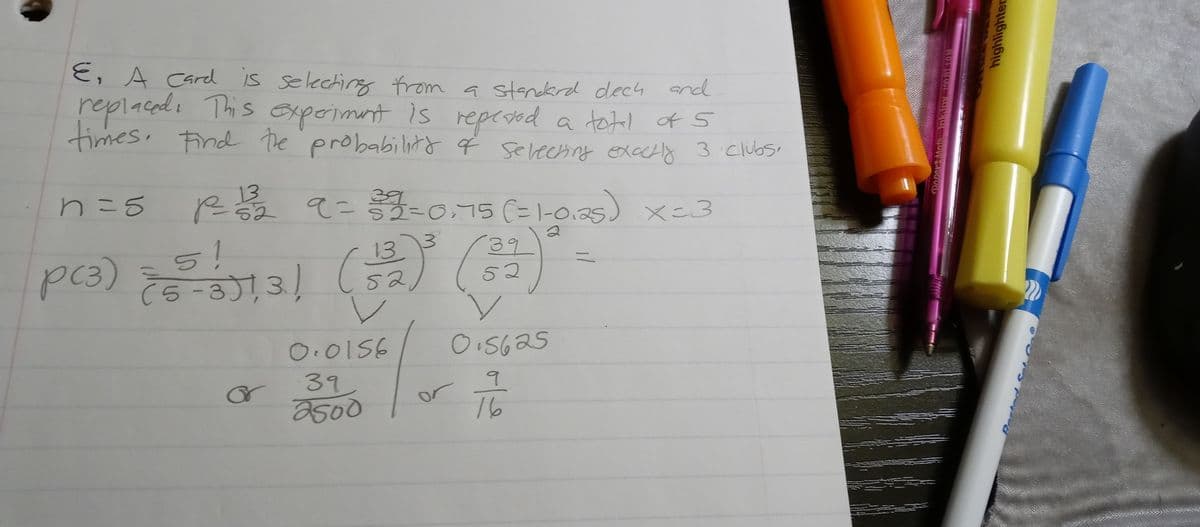 E, A Card is selecting from a standard deck and
replaced. This experiment is repeated a total of 5
times. Find the probability of selecting exactly 3 clubs.
n=5 p=13/52 q=39/52=0.75 (=1-0.25) x=3
p(3) = 5!/(5-3)!,3! (13/52)^3 (39/52)^2 =
0.0156 / 0.5625
or 39/2500 / or 9/16
highlighter